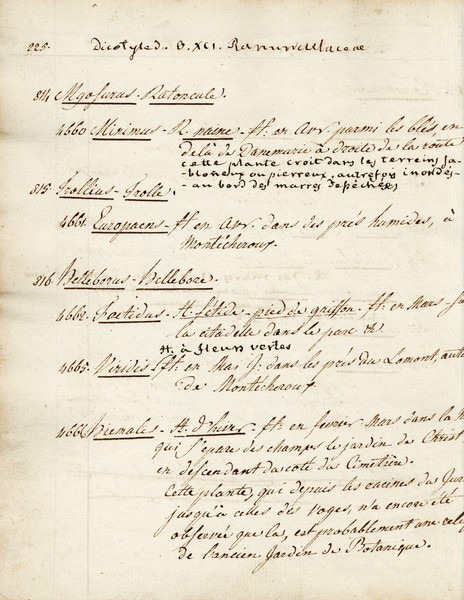 225. Dicotyled. O. XCI. Ranunculaceae
814 Myosurus - Ratoncule.
4660 Minimus - R. naine - fl. en Avr. parmi les bleds, en
delà de Danemarie à Droite de la route
cette plante croit dans les terrains sa-
bloneux ou pierreux, autrefois inondes -
815 Trollius - Trolle. - au bord des marres depéchées
4661. Europaeus - fl. en Avr. dans des prés humides, à
Montécheroux.
816. Helleborus - Hellebore.
4662. Faetidus - H. fétide - pied de griffon - fl. en Mars - 
la citadelle dans le parc &c.
H. à fleurs vertes
4665. Viridis - fl. en Mar. J. dans les prés du Lomont, 
de Montécheroux
4666 Hiemalis - H. d'hiver - fl. en fevrier, Mars dans la
qui Separe des champs le jardin de Christ
en descendant du coté du Cimetière.
Cette plante, qui depuis les racines du Jur
jusqu'à celles des Voges, n'a encore été
observée que la, est probablement une
de l'ancien Jardin de Botanique.